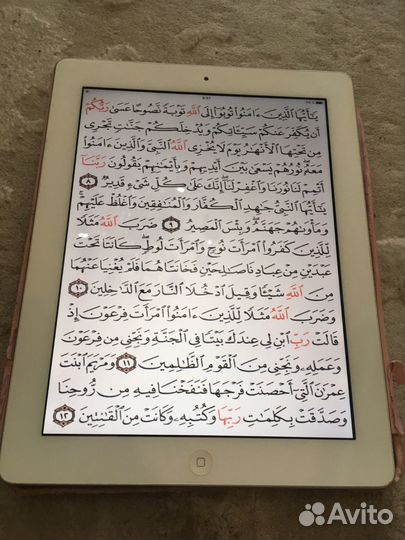 يَـٰٓأَيُّهَا ٱلَّذِينَ ءَامَنُوا۟ تُوبُوٓا۟ إِلَى ٱللَّهِ تَوْبَةً نَّصُوحًا عَسَىٰ رَبُّكُمْ
أَن يُكَفِّرَ عَنكُمْ سَيِّـَٔاتِكُمْ وَيُدْخِلَكُمْ جَنَّـٰتٍ تَجْرِى
مِن تَحْتِهَا ٱلْأَنْهَـٰرُ يَوْمَ لَا يُخْزِى ٱللَّهُ ٱلنَّبِىَّ وَٱلَّذِينَ ءَامَنُوا۟
مَعَهُۥ ۖ نُورُهُمْ يَسْعَىٰ بَيْنَ أَيْدِيهِمْ وَبِأَيْمَـٰنِهِمْ يَقُولُونَ رَبَّنَآ
أَتْمِمْ لَنَا نُورَنَا وَٱغْفِرْ لَنَآ ۖ إِنَّكَ عَلَىٰ كُلِّ شَىْءٍ قَدِيرٌ ٨
يَـٰٓأَيُّهَا ٱلنَّبِىُّ جَـٰهِدِ ٱلْكُفَّارَ وَٱلْمُنَـٰفِقِينَ وَٱغْلُظْ عَلَيْهِمْ ۚ
وَمَأْوَىٰهُمْ جَهَنَّمُ ۖ وَبِئْسَ ٱلْمَصِيرُ ٩ ضَرَبَ ٱللَّهُ مَثَلًا
لِّلَّذِينَ كَفَرُوا۟ ٱمْرَأَتَ نُوحٍ وَٱمْرَأَتَ لُوطٍ ۖ كَانَتَا تَحْتَ
عَبْدَيْنِ مِنْ عِبَادِنَا صَـٰلِحَيْنِ فَخَانَتَاهُمَا فَلَمْ يُغْنِيَا عَنْهُمَا
مِنَ ٱللَّهِ شَيْـًٔا وَقِيلَ ٱدْخُلَا ٱلنَّارَ مَعَ ٱلدَّٰخِلِينَ ١٠
وَضَرَبَ ٱللَّهُ مَثَلًا لِّلَّذِينَ ءَامَنُوا۟ ٱمْرَأَتَ فِرْعَوْنَ إِذْ
قَالَتْ رَبِّ ٱبْنِ لِى عِندَكَ بَيْتًا فِى ٱلْجَنَّةِ وَنَجِّنِى مِن فِرْعَوْنَ
وَعَمَلِهِۦ وَنَجِّنِى مِنَ ٱلْقَوْمِ ٱلظَّـٰلِمِينَ ١١ وَمَرْيَمَ ٱبْنَتَ
عِمْرَٰنَ ٱلَّتِىٓ أَحْصَنَتْ فَرْجَهَا فَنَفَخْنَا فِيهِ مِن رُّوحِنَا
وَصَدَّقَتْ بِكَلِمَـٰتِ رَبِّهَا وَكُتُبِهِۦ وَكَانَتْ مِنَ ٱلْقَـٰنِتِينَ ١٢
Avito